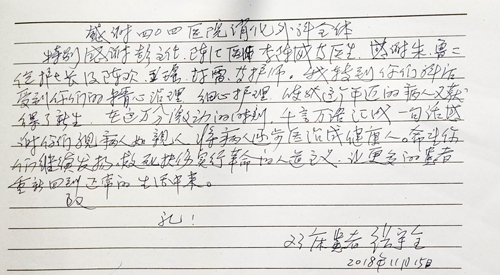 感谢四〇四医院消化外科全体
特别感谢彭主任、陈 医生
信护士长及陈欢、 护师。我转到你们科治
受到你们的精心治理、细心护理，使我这个年迈的病人又获
得了新生，在这万分激动的时刻，千言万语汇成一句话感
谢你们视病人如亲人，让病人 医治成健康人。希望你
们继续发扬救死扶伤实行革命的人道主义，让更多的患者
重新回到正常的生活中来。
致
礼！
23床患者 张
2018年11月15日